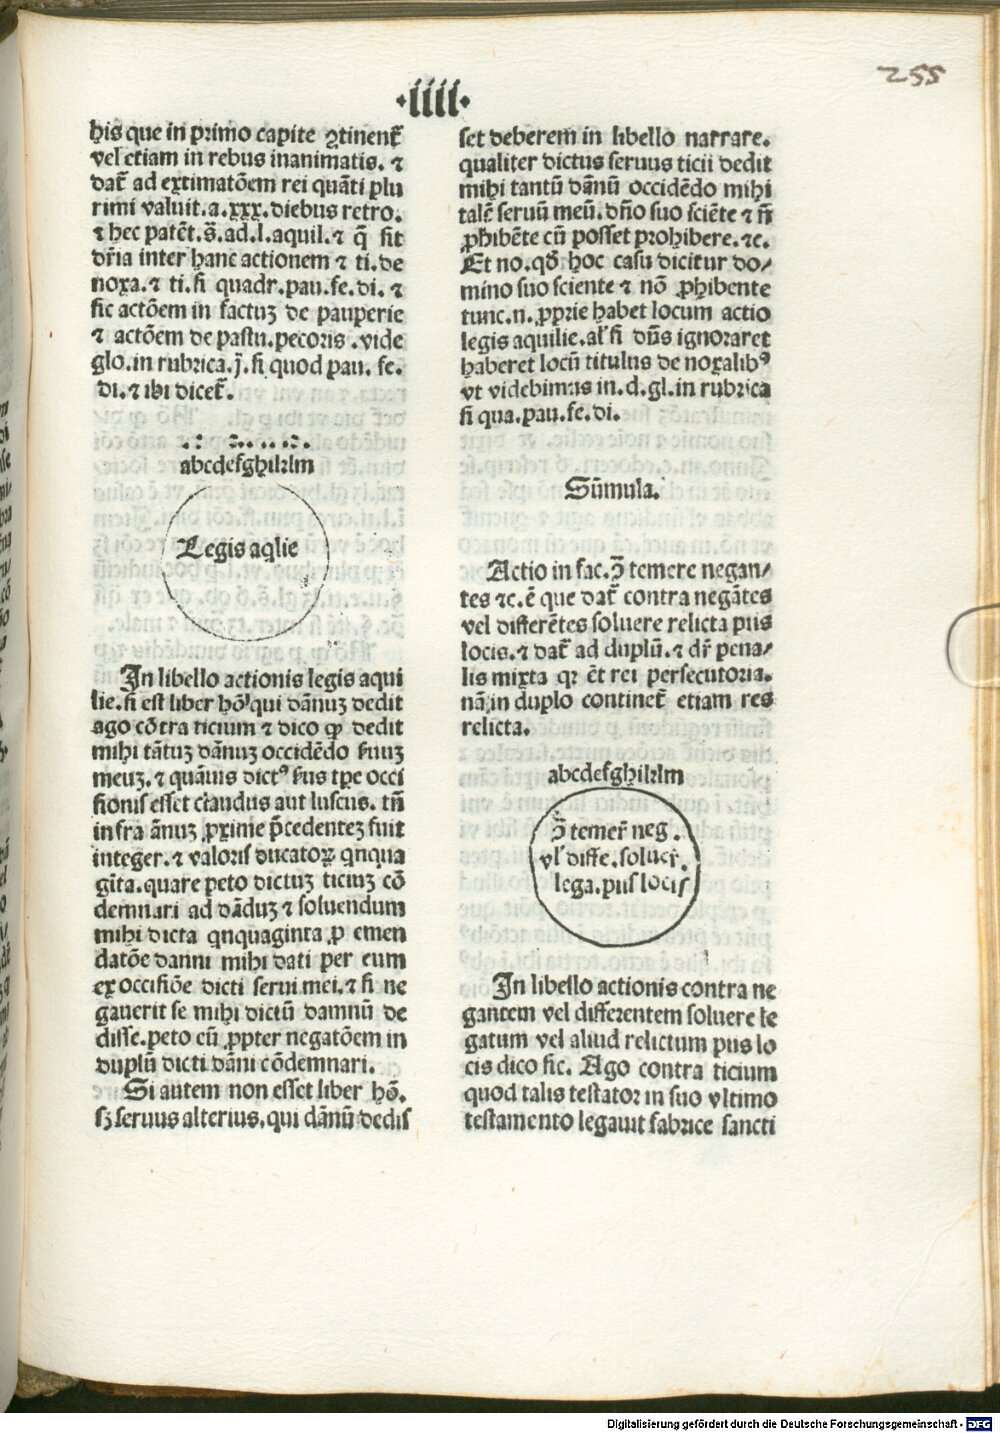 255
·iiii·
his que in primo capite ꝯtinent̄
vel etiam in rebus inanimatis. ⁊
dat̄ ad extimatōem rei quāti plu
rimi valuit.a.xxx.diebus retro.
⁊ hec patēt.s̄.ad.l.aquil.⁊ q̄ sit
dr̄ia inter hanc actionem ⁊ ti.de
noxa.⁊ ti.si quadr.pau.fe.di. ⁊
sic actōem in factuꝫ de pauperie
⁊ actōem de pastu.pecoris .vide
glo.in rubrica.j.si quod pau. fe.
di.⁊ ibi dicet̄.
abcdefghiklm
Legis aqlie
In libello actionis legis aqui
lie.si est liber hō qui dānuꝫ dedit
ago cōtra ticium ⁊ dico ꝙ dedit
mihi tātuꝫ dānuꝫ occidēdo ẜuuꝫ
meuꝫ.⁊ quāuis dictꝰ ẜus tꝑe occi
sionis esset claudus aut luscus. tn̄
infra ānuꝫ ꝓxime p̄cedenteꝫ fuit
integer.⁊ valoris ducatoꝝ qnqua
gīta.quare peto dictuꝫ ticiuꝫ cō
demnari ad dāduꝫ ⁊ soluendum
mihi dicta qnquaginta ꝓ emen
datōe danni mihi dati per eum
ex occisiōe dicti serui mei.⁊ si ne
gauerit se mihi dictū damnū de
disse.peto eū ꝓpter negatōem in
duplū dicti dāni cōdemnari.
Si autem non esset liber hō.
sꝫ seruus alterius.qui dānū dedis
set deberem in libello narrare.
qualiter dictus seruus ticii dedit
mihi tantū dānū occidēdo mihi
talē seruū meū.dn̄o suo sciēte ⁊ n̄
ꝓhibēte cū posset prohibere.⁊c.
Et no.qd̄ hoc casu dicitur do/
mino suo sciente ⁊ nō ꝓhibente
tunc.n.ꝓprie habet locum actio
legis aquilie.al̄ si dn̄s ignoraret
haberet locū titulus de noxalibꝰ
vt videbimus in.d.gl.in rubrica
si qua.pau.fe.di.
Sūmula.
Actio in fac.ꝯ̄ temere negan/
tes ⁊c.ē que dat̄ contra negātes
vel differētes soluere relicta piis
locis.⁊ dat̄ ad duplū.⁊ dr̄ pena/
lis mixta qꝛ ēt rei persecutoria.
nā in duplo continet̄ etiam res
relicta.
abcdefghiklm
ꝯ̄ temer̄ neg.
vl̄ diffe.soluer̄.
lega.piis locis
In libello actionis contra ne
gantem vel differentem soluere le
gatum vel aliud relictum piis lo
cis dico sic. Ago contra ticium
quod talis testator in suo vltimo
testamento legauit fabrice sancti
Digitalisierung gefördert durch die Deutsche Forschungsgemeinschaft - DFG